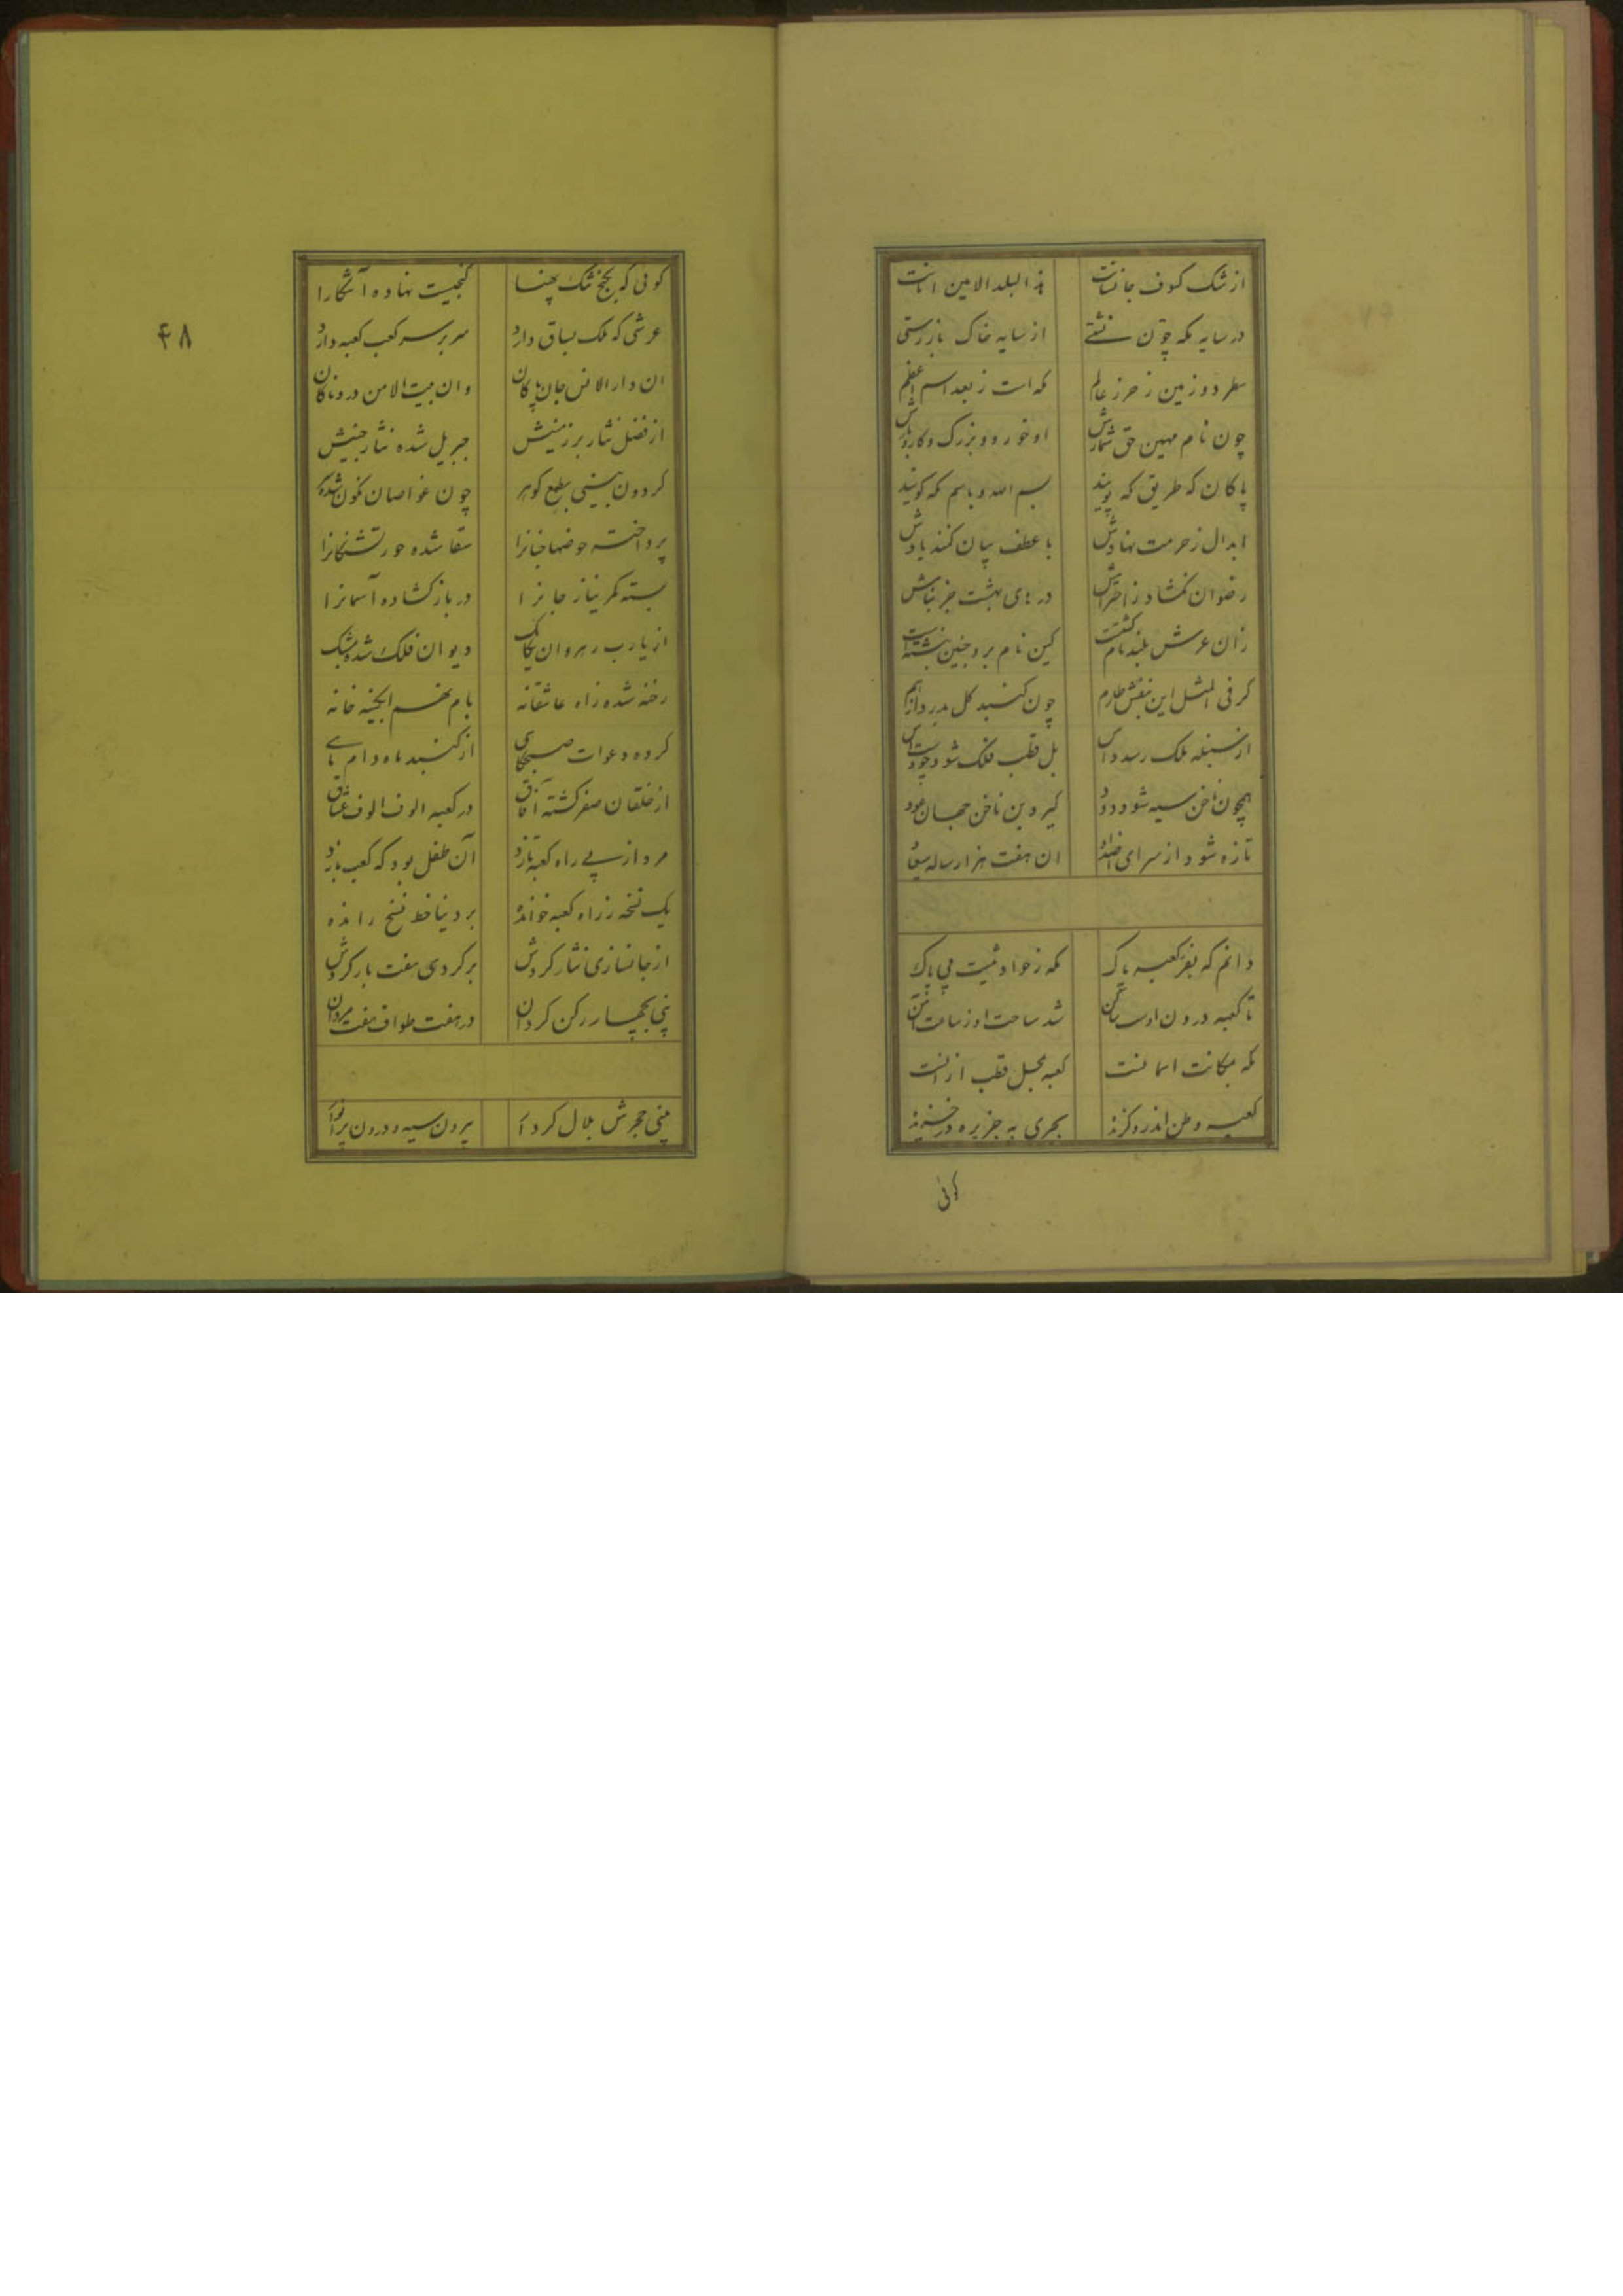 از شک کسوف جانست هذا البلد الامین امانست
در سایه مکه چون نشستی از سایه خاک باز رستی
سطر دو زمین ز حرز عالم مکه است ز بعد اسم اعظم
چون نام مهین حق شمارش او خورد و بزرگ و کار و بارش
پاکان که طریق که پویند بسم الله و باسم مکه گویند
ابدال ز حرمت نهادش با عطف بیان کنند یادش
رضوان نگشاد ز احترامش درهای بهشت جز بنامش
زان عرش بلند نام گشتست کین نام بر و جبین نبشتست
گر فی المثل این بنفش طارم چون گنبد گل بدرد از هم
از سنبله ملک رسد داس بل قطب فلک شود چو دستاس
همچون ناخن سیه شود دود گیرد بن ناخن جهان دود
تازه شود از سرای
ان هفت هزار ساله میعاد
دانم که بفر کعبه پاک مکه ز حوادثیست بی باک
تا کعبه درون اوست ساکن شد ساحت او ز ساعت ایمن
مکه بمکانت اسمانست کعبه بمحل قطب ازانست
کعبه وطن اندرو گزیند بحری به جزیره در خزیند
گوئی
گوئی که بکنج خشک پهنا گنجیست نهاده آشکارا
عرشی که ملک بساق دارد سر بر سر کعب کعبه دارد
ان دار الانس جان پاکان وان بیت الامن دردناکان
از فضل نثار بر زمینش جبریل شده نثار چینش
گردون بینی بطمع گوهر چون غواصان نگون شده سر
پرداخته حوضها جنانرا سقا شده حور تشنگانرا
بسته کمر نیاز جانرا در باز گشاده آسمانرا
از یارب رهروان یکایک دیوان فلک شده مشبک
رخنه شده ز اه عاشقانه بام نهم آبگینه خانه
کرده دعوات صبحگاهی از گنبد ماه دام ماهی
از خلقان صفر گشته آفاق در کعبه الوف الوف عشاق
مرد از پی راه کعبه تازد آن طفل بود که کعب بازد
یک نسخه ز راه کعبه خوانده بر دنیا خط نسخ رانده
از جانسازی نثار کردش بر گردی هفت بار گردش
بینی بچهار رکن گردان در هفت طواف هفت مردان
بینی حجرش بلال کردار بیرون سیه و درون پر انوار
۴۸